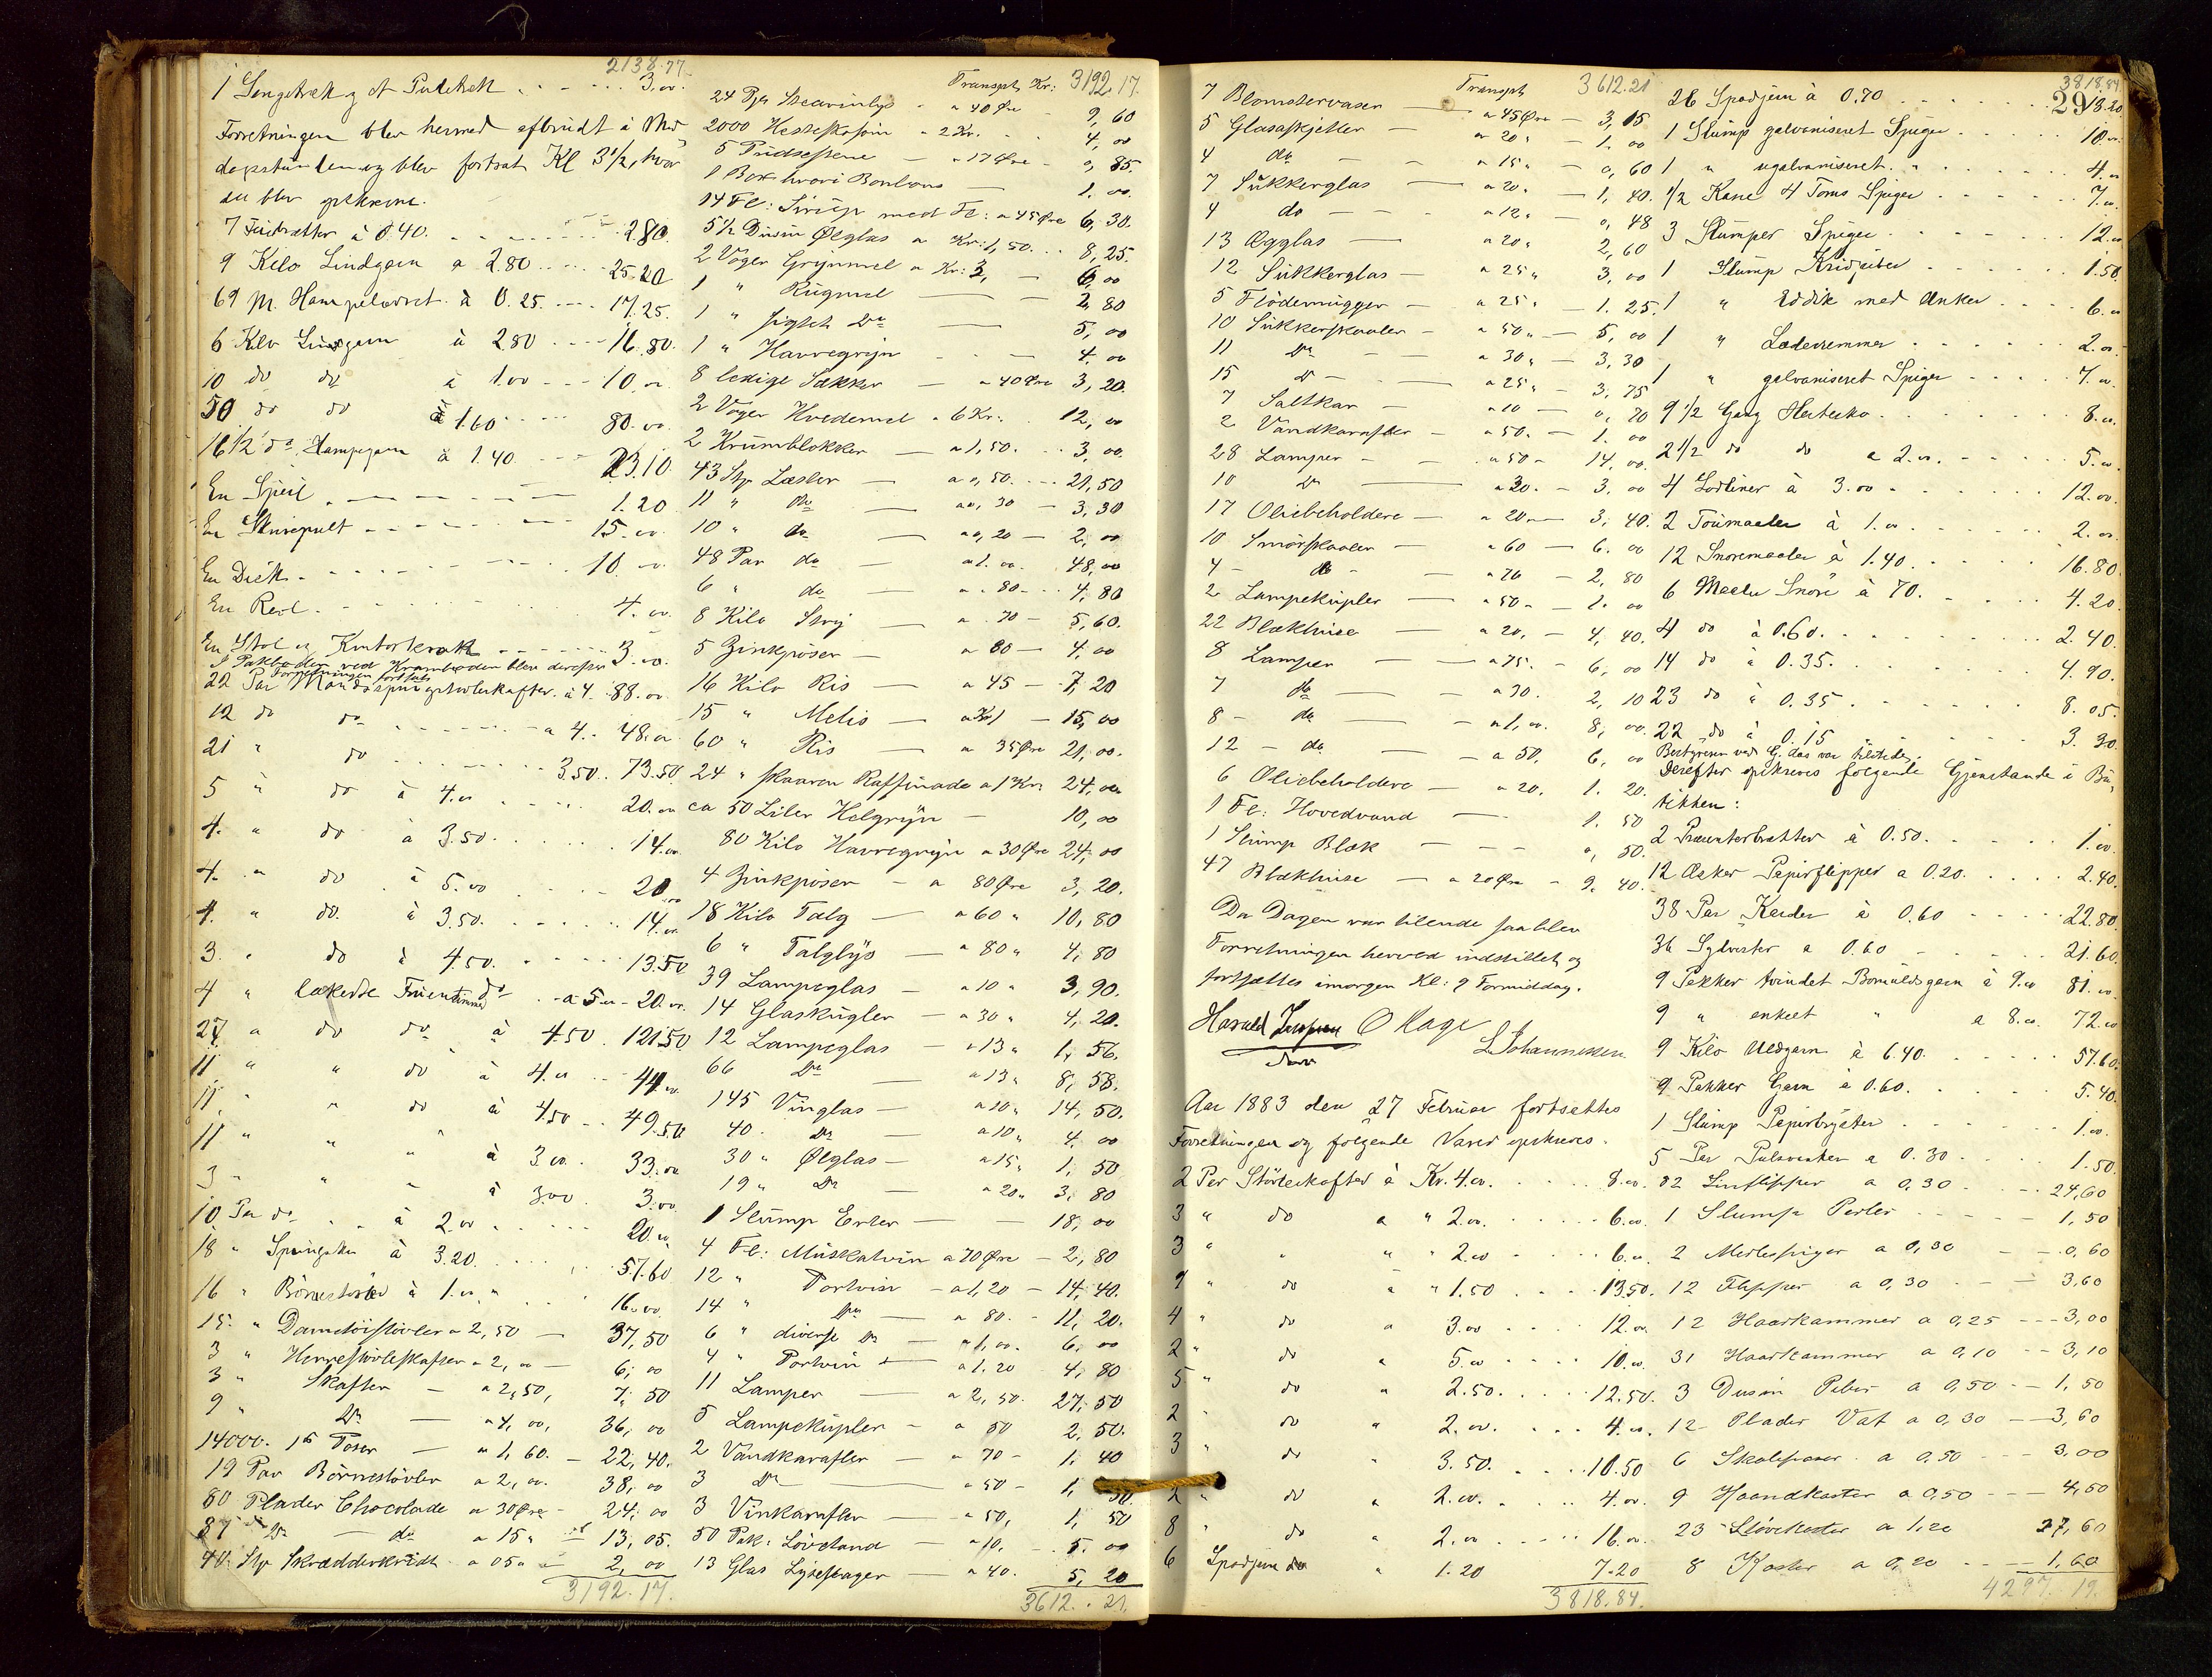 2138.77
1 Sengetræk og et Putetræk . . . . 3,00
Forretningen blev hermed afbrudt i Mid
dagsstunden og blev fortsat Kl 3½, hvor
der blev opskreven.
7 à 0.40. . . . 2.80.
9 Kilo Lindgarn a 2.80 . . . 25.20
69 M. Hampelærret à 0.25. . . . 17.25.
6 Kilo Lingarn à 2.80 . . . 16.80.
10 do do à 1.00 . . . 10.00
50 do do à 1.60 . . . 80.00
16 1/2 do Hampegarn à 1.40 . . . 23.10.
En Speil . . . 1.20
En Skrivepult . . . 15.00
En Disk . . . 10.00
En Reol . . . 4.00
En Stol og Kontorkrak . . . 3.00
I Pakboden ved Kramboden blev derefter
Forretningen fortsat
22 Par Mandsspringstøvleskafter à 4. 88.00
12 do do . . . a 4. 48.00
21 " do . . . 3.50. 73.50
5 " do à 4.00 . . . 20.00
4. " do à 3.50 . . . 14.00
4. " do à 5.00 . . . 20.00
4. " do. à 3.50. . . . 14.00
3. " do à 4.50. . . . 13.50
4 " lakerte Fruentimmer do a 5.00 - 20.00
27 " do do à 4.50. 121.50
11 " " do à 4.00 . . 44.00
11 " " do à 4.50 . . 49.50
11 " " " à 3.00 . 33.00
3 " " " à 3.00 3.00
10 Par do . . à 2.00 . . . 20.00
18 " Springsko à 3.20. . . . 57.60
16 " Börnestövler à 1.00 . . . 16.00
15. " Dametöistövler a 2,50 — 37,50
3 " Herrestøvleskafter a 2,00 — 6,00
3 " Skafter — a 2,50, 7,50
9 " Do — a 4,00, 36,00
14000. 1 ft Poser — a 1,60. — 22,40.
19 Par Börnestövler a 2,00. 38,00
80 Plader Chocolade a 30 Øre - 24,00
87 Do — do a 15 " = 13,05.
40. Stp Skrædderkridt a 05 " 2,00
3192.17.
Transpt. Kr: 3192.17.
24 Pk Stearinlys - a 40 Øre - 9,60
2000 Hesteskosöm - a 2 Kr. . 4,00
5 Pudsestene — a 17 Øre - 0,85.
1 Box hvori Bonbons — 1.00.
14 Fl: Sirup med Fl: a 45 Øre 6,30.
5½ Dusin Ølglas a Kr: 1,50. . . 8,25.
2 Voger Grynmel a Kr: 3, — 6,00
1 " Rugmel — 2,80
1 " sigtet Do — 5,00
1 " Havregryn - - — 4.00
8 ledige Sækker — a 40 Øre 3,20.
2 Voger Hvedemel a 6 Kr: . 12,00
2 Krumblokker — a 1,50. . . 3,00.
43 Stp Læster — a 0,50. . . . 21,50
11 " do — a 0,30 — 3,30
10 " do — a 0,20 — 2,00
48 Par do — a 1.00. 48,00
6 " do — a .80 . . 4,80
8 Kilo Stry — a .70 - 5,60.
5 Zinkpöser — a 80 — 4,00
16 Kilo Ris — a 45 — 7,20
15 " Melis — a Kr 1 — 15,00
60 " Ris — a 35 Øre 21,00.
24 " skaaren Raffinade a 1 Kr: 24,00
ca 50 Liter Helgryn — 10,00
80 Kilo Havregryn a 30 Øre 24,00
4 Zinkpöser — a 80 Øre 3,20.
18 Kilo Talg — a 60 " 10,80
6 " Talglys — a 80 " 4,80
39 Lampeglas — a 10 " 3,90.
14 Glaskugler — a 30 " 4,20.
12 Lampeglas — a 13 " 1,56.
66 Do — a 13 " 8,58.
145 Vinglas — a 10 " 14,50.
40. Do — a 10 " 4.00
30 " Ølglas — a 15 " 1,50
19 " Do — a 20 " 3,80
1 Slump Erter — — 18,00
4 Fl: Muskatvin a 70 Øre — 2,80
12 " Portvin — a 1,20 — 14,40.
14 " Do — a 80. - 11,20.
6 " diverse Do — a 1,00. 6.00
4 " Portvin — a 1.20 4,80
11 Lamper — a 2,50. 27,50
5 Lampekupler — a 50 2,50.
2 Vandkarafler — a 70 - 1,40
3 Do — a 50 - 1,50.
3 Vinkarafler — a 50, 1,50
50 Pak: Lövetand — a 10. - 5.00
13 Glas Lysestager — a 40. 5,20
3612.21.
Transpt 3612.21
7 Blomstervaser — a 45 Øre — 3,15
5 Glasaskjetter — a 20 " — 1.00
4 do — — a 15 " — 0,60
7 Sukkerglas — a 20 " — 1,40.
4 do — — a 12 " — 0,48
13 Ægglas — a 20 " 2,60
12 Sukkerglas — a 25 " 3,00
5 Flödemugger — a 25 " 1.25.
10 Sukkerskaaler — a 50 " — 5,00
11 Do — a 30 " — 3,30
15 Do — a 25 " — 3,75
7 Saltkar — a 10 — 0,70
2 Vandkarafler — a 50. — 1.00
28 Lamper — — a 50 - 14,00.
10 Do — a 30. — 3.00
17 Oliebeholdere — a 20 — 3,40.
10 Smörskaaler — a 60 — 6.00
4 - do — — a 70 — 2,80
2 Lampekupler — a 50 - — 1.00
22 Blækhuse — a 20, — 4,40.
8 Lamper — — a 75. - 6,00
7 do — — a 30. 2,10
8 - do — — a 1,00. 8,00.
12 - do — — a 50. 6,00
6 Oliebeholdere — a 20. 1.20.
1 Fl: Hovedvand — — 1.50
1 Slump Blæk — — — 0,50.
47 Blækhuse — a 20 Øre - 9.40.
Da Dagen var tilende saa blev
Forretningen herved indstillet og
fortsættes imorgen Kl: 9 Formiddag.
Harald O Hage
L Johannessen
Aar 1883 den 27 Februar fortsattes
Forretningen og følgende Varer opskreves.
2 Par Störleskafter à Kr. 4.00. . . . 8.00.
3 " do a " 2.00. . . . 6.00.
3 " " " " 2.00 . . . 6.00.
9 " do à " 1.50 . . . 13.50.
4 " do a 3.00 . . . 12.00.
2 " do a 5.00 . . . 10.00.
5 " do " 2.50. . . . 12.50.
2 " do " 2.00. . . . 4.00.
3 " do " 3.50. . . . 10.50
2 " do a 2.00. . . . 4.00.
8 " do " 2.00 . . . 16.00.
6 Spadjern do " 1.20 7.20
3818.84.
3818.84
29
26 Spadjern à 0.70 . . . 18.20
1 Slump galvaniseret Spiger . . . 10.00
1 " ugalvaniseret . . . 4.00
1/2 Kasse 4 Toms Spiger . . . 7.00
3 Slumper Spiger . . . 12.00
1 Slump Kridpiber . . . 1.50
1 " Eddik med Anker . . . 6.00
1 " Læderremmer . . . 2.00
1 " galvaniseret Spiger . . . 7.00
9 1/2 Gang Hestesko . . . 8.00
2 1/2 do do a 2.00. . . . 5.00
4 Lodliner à 3.00 . . . 12.00.
2 Toumaater à 1.00 . . . 2.00
12 Snoremaater à 1.40. . . . 16.80
6 Maater Snöre à 70. . . . 4.20.
4 do à 0.60. . . . 2.40.
14 do à 0.35. . . . 4.90.
23 do à 0.35. . . . 8.05.
22 do à 0.15 . . . 3.30
Bestyreren ved G. das var tilstede.
Derefter opskreves følgende Gjenstande i Bu-
tikken:
2 Præsenterbrætter à 0.50. . . . 1.00
12 Æsker Papirflipper a 0.20. . . . 2.40.
38 Par Karder à 0.60 . . . 22.80.
36 a 0.60 . . . 21.60.
9 Pakker tvindet Bomuldsgarn à 9.00 81.00.
9 " enkelt " a 8.00. 72.00
9 Kilo Uldgarn à 6.40. . . . 57.60.
9 Pakker Garn à 0.60. . . . 5.40.
1 Slump . . . 1.00.
5 Par Pulsvanter a 0.30 . . . 1.50.
82 Linflipper a 0,30 . . . 24,60
1 Slump Perler . . . 1,50
2 a 0,30 — — 0,60
12 Flipper a 0,30 - — — 3,60
12 Haarkammer a 0,25 - - - 3,00
31 Haarkammer a 0,10 - - 3,10
3 Dusin Piber a 0,50 - - 1,50
12 Plader Vat a 0,30 — — 3,60
6 a 0,50 - - — 3,00
9 Haandkoster a 0,50 - - — 4,50
23 Støvekoster a 1,20 27,60
8 Koster a 0,20 - - — 1,60
4297.19.